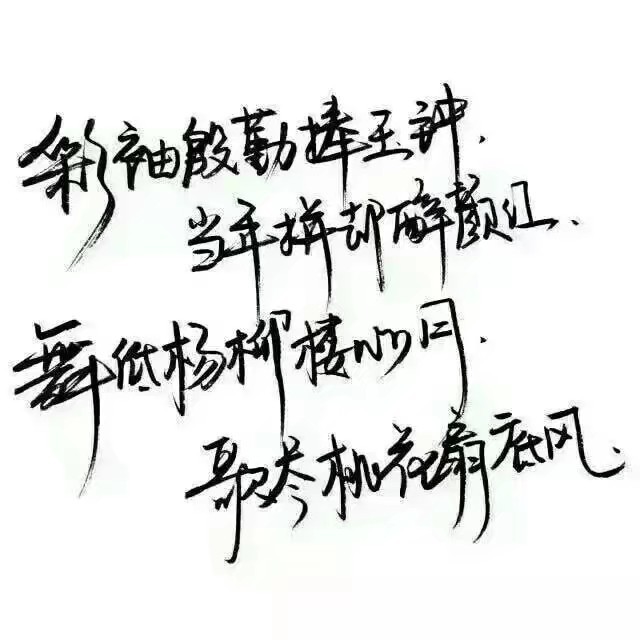 彩袖殷勤捧玉钟、
当年拼却醉颜红、
舞低杨柳楼心月、
歌尽桃花扇底风、